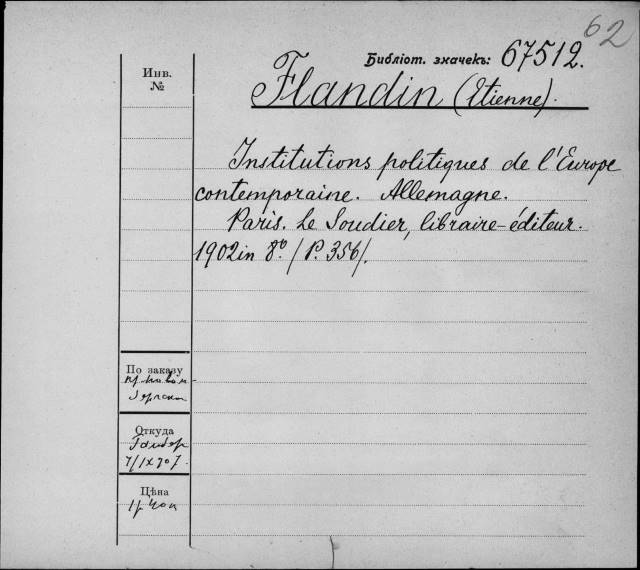 62
Библіот. значекъ: 67512.
Инв.
№
Flandin (Etienne).
Institutions politiques de l'Europe
contemporaine. Allemagne.
Paris. Le Soudier, libraire-éditeur.
1902 in 8º. /P. 356/.
По заказу
Откуда
Цѣна
1 р. 40 к